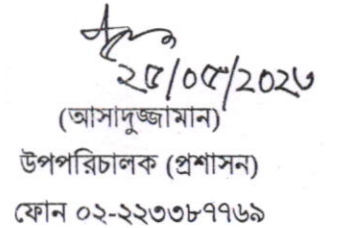 ২৫/০৫/২০২৩
(আসাদুজ্জামান)
উপপরিচালক (প্রশাসন)
ফোন ০২-২২৩৩৮৭৭৬৯